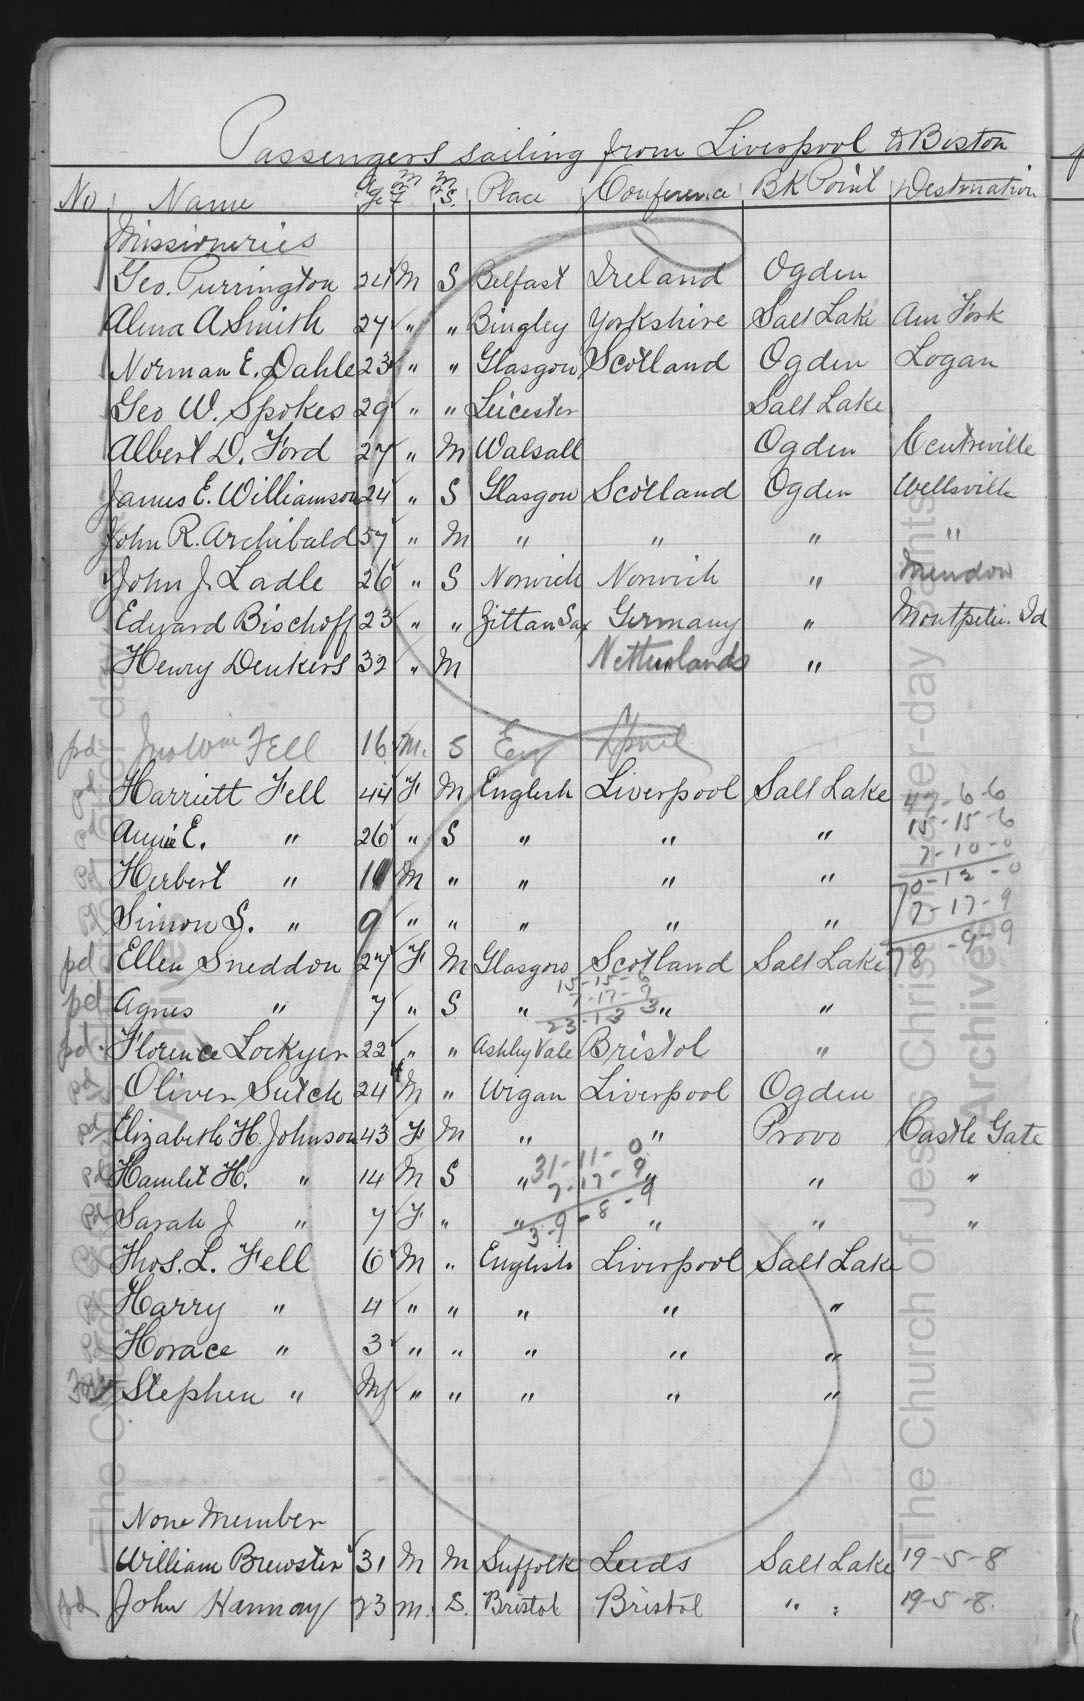 Passengers sailing from Liverpool to Boston
No Name Age M F M S. Place Conference BK Point Destination
Missioneries
Geo. Purrington 24 M S Belfast Ireland Ogden
Alma A Smith 27 " " Bingley Yorkshire Salt Lake Am Fork
Norman E. Dahle 23 " " Glasgow Scotland Ogden Logan
Geo W. Spokes 29 " " Leicester Salt Lake
Albert D. Ford 27 " M Walsall Ogden Centreville
James E. Williamson 24 " S Glasgow Scotland Ogden Wellsville
John R. Archibald 57 " M " " " "
John J. Ladle 26 " S Norwich Norwich " Mendon
Edward Bischoff 23 " " Zittau Sax Germany " Montpelier Id
Henry Denkers 32 " M Netherlands "
pd Jno Wm Fell 16 M. S Eng
pd Harriett Fell 44 F M English Liverpool Salt Lake 47-6-6
pd Annie E. " 26 " S " " " 15-15-6
7-10-0
pd Herbert " 11 M " " " " 70-12-0
pd Simon S. " 9 " " " " " 7-17-9
pd Ellen Sneddon 27 F M Glasgow Scotland Salt Lake 78-9-9
15-15-6
7-17-9
pd Agnes " 7 " S " " "
23-13 3
pd. Florence Lockyer 22 " " Ashley Vale Bristol "
pd Oliver Sutch 24 M " Wigan Liverpool Ogden
pd Elizabeth H. Johnson 43 F M " " Provo Castle Gate
31-11-0
pd Hamlet H. " 14 M S " " " "
7-17-9
pd Sarah J " 7 F " " " " "
39-8-9
pd Thos. L. Fell 6 M " English Liverpool Salt Lake
pd Harry " 4 " " " " "
pd Horace " 3 " " " " "
Stephen " Inf " " " " "
None Member
William Brewster 31 M M Suffolk Leeds Salt Lake 19-5-8
pd John Hannay 23 M. S. Bristol Bristol " " 19-5-8.
The Church of Jesus Christ of Latter-day Saints
Archives
The Church of Jesus Christ of Latter-day Saints
Archives